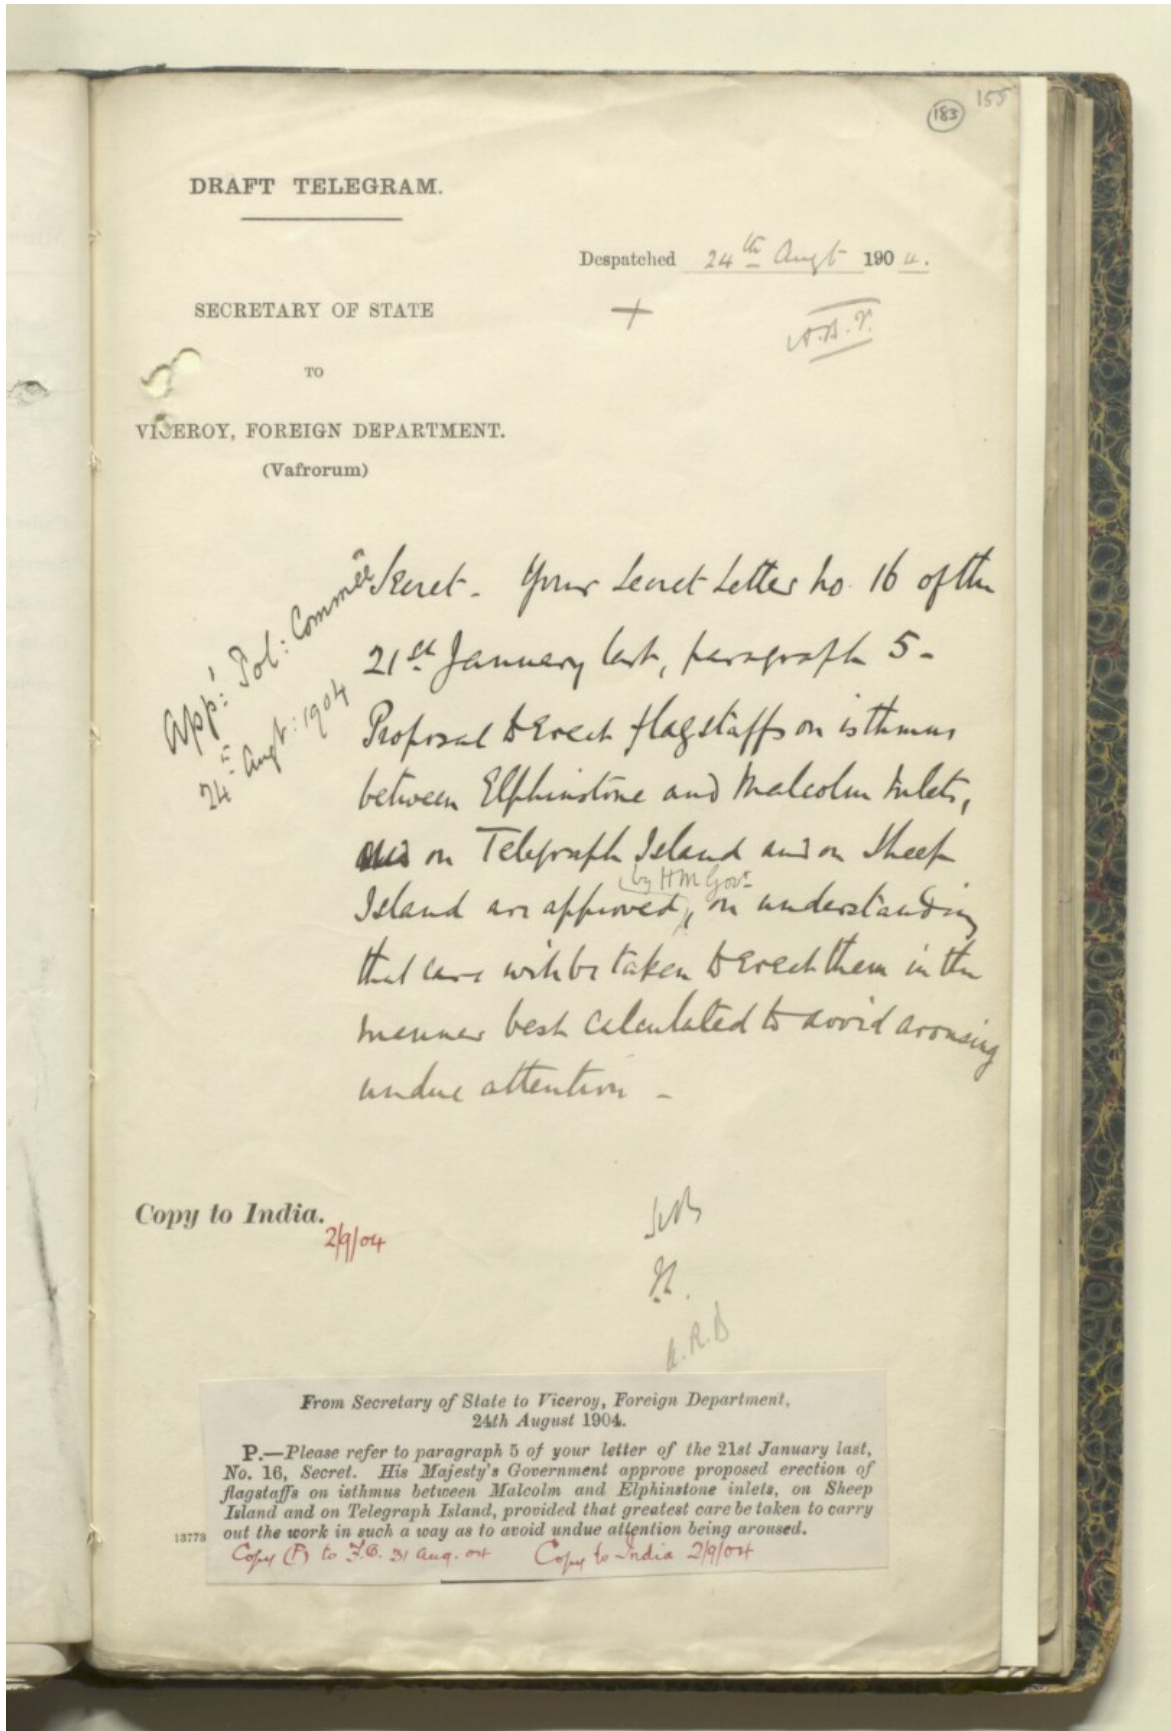 183 155
DRAFT TELEGRAM.
Despatched 24th Augt 1904.
SECRETARY OF STATE
TO
VICEROY, FOREIGN DEPARTMENT.
(Vafrorum)
App: Pol: Commee
24th Augt: 1904
Secret. Your Secret Letter No. 16 of the
21st January last, paragraph 5 -
Proposal to erect flagstaffs on isthmus
between Elphinstone and Malcolm Inlets,
on Telegraph Island and on Sheep
by HM Govt
Island are approved, on understanding
that care will be taken to erect them in the
manner best calculated to avoid arousing
undue attention -
Copy to India.
2/9/04
A.R.D
From Secretary of State to Viceroy, Foreign Department,
24th August 1904.
P.—Please refer to paragraph 5 of your letter of the 21st January last,
No. 16, Secret. His Majesty's Government approve proposed erection of
flagstaffs on isthmus between Malcolm and Elphinstone inlets, on Sheep
Island and on Telegraph Island, provided that greatest care be taken to carry
13773 out the work in such a way as to avoid undue attention being aroused.
Copy (P) to F.O. 31 Aug. 04 Copy to India 2/9/04